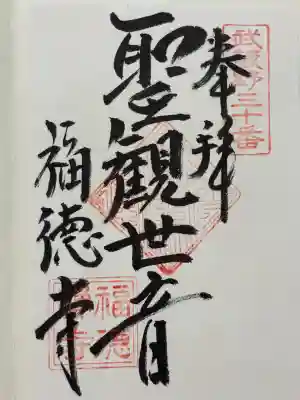 武蔵野三十番
奉拝
聖觀世音
福德寺
福德寺